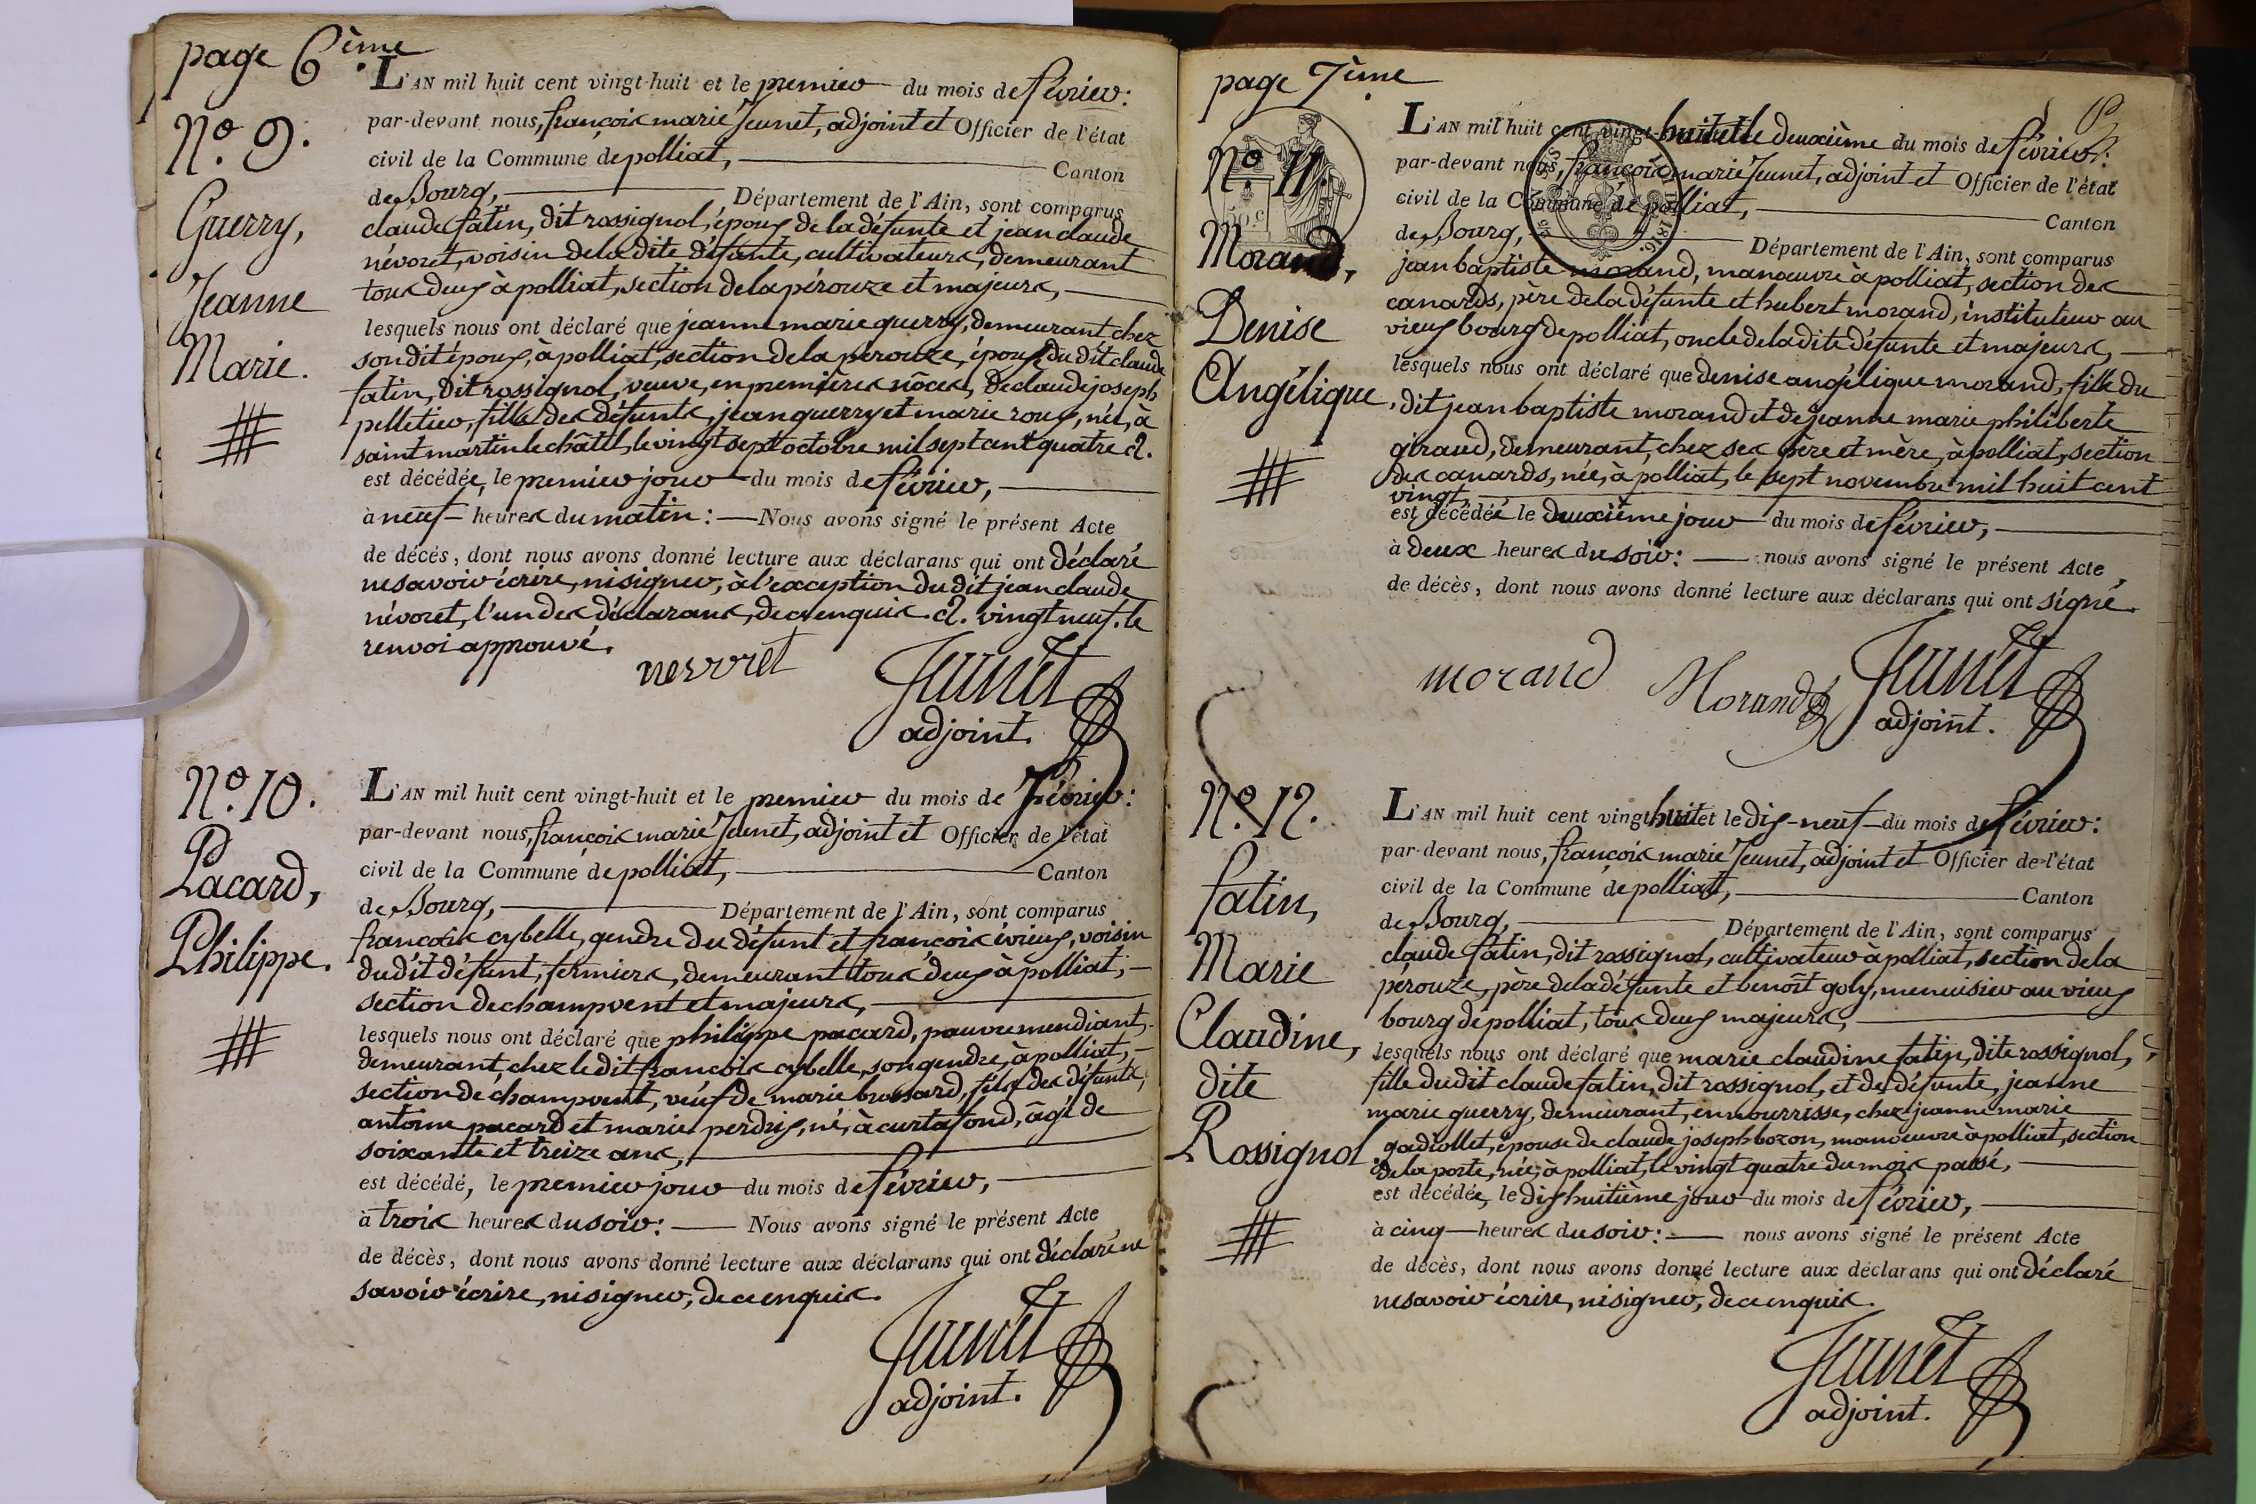 page 6ème
N.o 9.
Guerry,
Jeanne
Marie.
L'AN mil huit cent vingt-huit et le premier du mois de février:
par-devant nous, françois marie Jeunet, adjoint et Officier de l'état
civil de la Commune de polliat, Canton
de Bourg, Département de l'Ain, sont comparus
claude fatin, dit rossignol, époux de la défunte et jean claude
névoret, voisin de la dite défunte, cultivateurs, demeurant
tous deux à polliat, section de la pérouze et majeurs,
lesquels nous ont déclaré que jeanne marie guerry, demeurant chez
son dit époux, à polliat, section de la perouze, épouse du dit claude
fatin, dit rossignol, veuve, en premières nôces, de claude joseph
pelletier, fille des défunts, jean guerry et marie roux, née, à
saint martin le châtel, le vingt sept octobre mil sept cent quatre
est décédée, le premier jour du mois de février,
à neuf heures du matin: Nous avons signé le présent Acte
de décès, dont nous avons donné lecture aux déclarans qui ont déclaré
ne savoir écrire, ni signer, à l'exception du dit jean claude
névoret, l'un des déclarans, de ce enquis. vingt neuf. le
renvoi approuvé.
nevoret Jeunet
adjoint.
N.o 10.
Pacard,
Philippe.
L'AN mil huit cent vingt-huit et le premier du mois de février:
par-devant nous, françois marie Jeunet, adjoint et Officier de l'état
civil de la Commune de polliat, Canton
de Bourg, Département de l'Ain, sont comparus
françois cybelle, gendre du défunt et françois évieux, voisin
du dit défunt, fermiers, demeurant tous deux à polliat,
section de champvent et majeurs,
lesquels nous ont déclaré que philippe pacard, pauvre mendiant,
demeurant, chez le dit françois cybelle, son gendre, à polliat,
section de champvent, veuf de marie brossard, fils des défunts,
antoine pacard et marie perdrix, né, à curtafond, âgé de
soixante et treize ans,
est décédé, le premier jour du mois de février,
à trois heures du soir: Nous avons signé le présent Acte
de décès, dont nous avons donné lecture aux déclarans qui ont déclaré ne
savoir écrire, ni signer, de ce enquis.
Jeunet
adjoint.
page 7ème
N.o 11.
Morand,
Denise
Angélique,
50 c
L'AN mil huit cent vingt-huit et le deuxième du mois de février:
par-devant nous, françois marie Jeunet, adjoint et Officier de l'état
civil de la Commune de polliat, Canton
de Bourg, Département de l'Ain, sont comparus
jean baptiste morand, manoeuvre à polliat, section des
canards, père de la défunte et hubert morand, instituteur au
vieux bourg de polliat, oncle de la dite défunte et majeurs,
lesquels nous ont déclaré que denise angélique morand, fille du
dit jean baptiste morand et de jeanne marie philiberte
giraud, demeurant, chez ses père et mère, à polliat, section
des canards, née, à polliat, le sept novembre mil huit cent
vingt
est décédée le deuxième jour du mois de février,
à deux heures du soir: nous avons signé le présent Acte
de décès, dont nous avons donné lecture aux déclarans qui ont signé
morand Morand Jeunet
adjoint.
N.o 12.
fatin,
Marie
Claudine,
dite
Rossignol
L'AN mil huit cent vingt huit et le dix-neuf du mois de février:
par-devant nous, françois marie Jeunet, adjoint et Officier de l'état
civil de la Commune de polliat, Canton
de Bourg, Département de l'Ain, sont comparus
claude fatin, dit rossignol, cultivateur à polliat, section de la
pérouze, père de la défunte et benoît goly, menuisier au vieux
bourg de polliat, tous deux majeurs,
lesquels nous ont déclaré que marie claudine fatin, dite rossignol,
fille du dit claude fatin, dit rossignol, et de défunte, jeanne
marie guerry, demeurant, en nourrisse, chez jeanne marie
gadiollet, épouse de claude joseph bozon, manoeuvre à polliat, section
de la poste, née, à polliat, le vingt quatre du mois passé,
est décédée, le dix huitième jour du mois de février,
à cinq heures du soir: nous avons signé le présent Acte
de décès, dont nous avons donné lecture aux déclarans qui ont déclaré
ne savoir écrire, ni signer, de ce enquis.
Jeunet
adjoint.